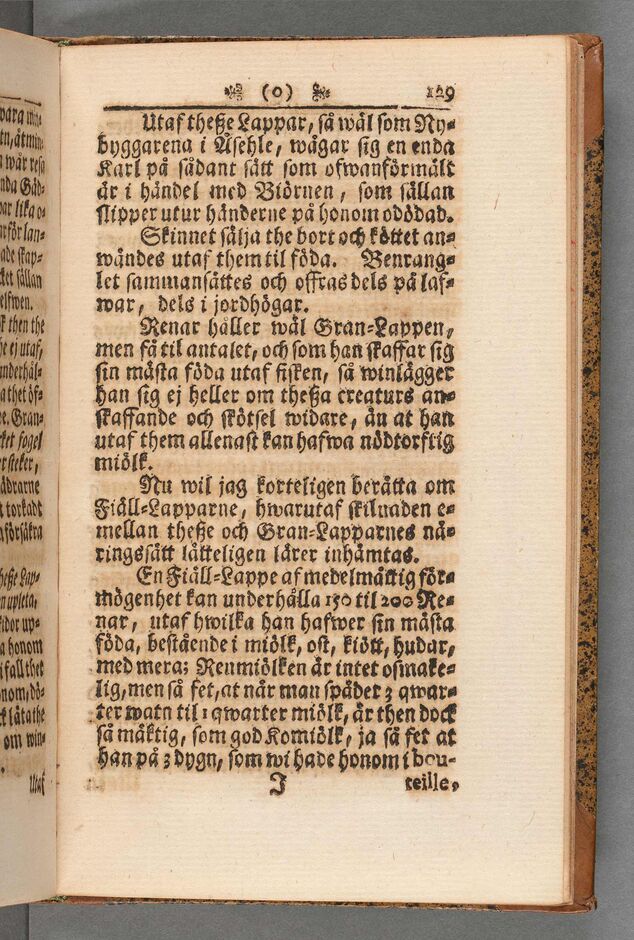 (o) 129
Utaf theße Lappar, så wäl som Ny-
byggarena i Åsehle, wågar sig en enda
Karl på sådant sätt som ofwanförmält
är i händel med Biörnen, som sällan
slipper utur händerne på honom odödad.
Skinnet sälja the bort och köttet an-
wändes utaf them til föda. Benrang-
let sammansättes och offras dels på laf-
war, dels i jordhögar.
Renar håller wäl Gran-Lappen,
men få til antalet, och som han skaffar sig
sin mästa föda utaf fisken, så winlägger
han sig ej heller om theßa creaturs an-
skaffande och skötsel widare, än at han
utaf them allenast kan hafwa nödtorftig
miölk.
Nu wil jag korteligen berätta om
Fiäll-Lapparne, hwarutaf skilnaden e-
mellan theße och Gran-Lapparnes nä-
ringssätt lätteligen lärer inhämtas.
En Fiäll-Lappe af medelmåttig för-
mögenhet kan underhålla 150 til 200 Re-
nar, utaf hwilka han hafwer sin mästa
föda, bestående i miölk, ost, kiött, hudar,
med mera; Renmiölken är intet osmake-
lig, men så fet, at när man späder 3 qwar-
ter watn til 1 qwarter miölk, är then dock
så mäktig, som god Komiölk, ja så fet at
han på 3 dygn, som wi hade honom i bou-
J teille,